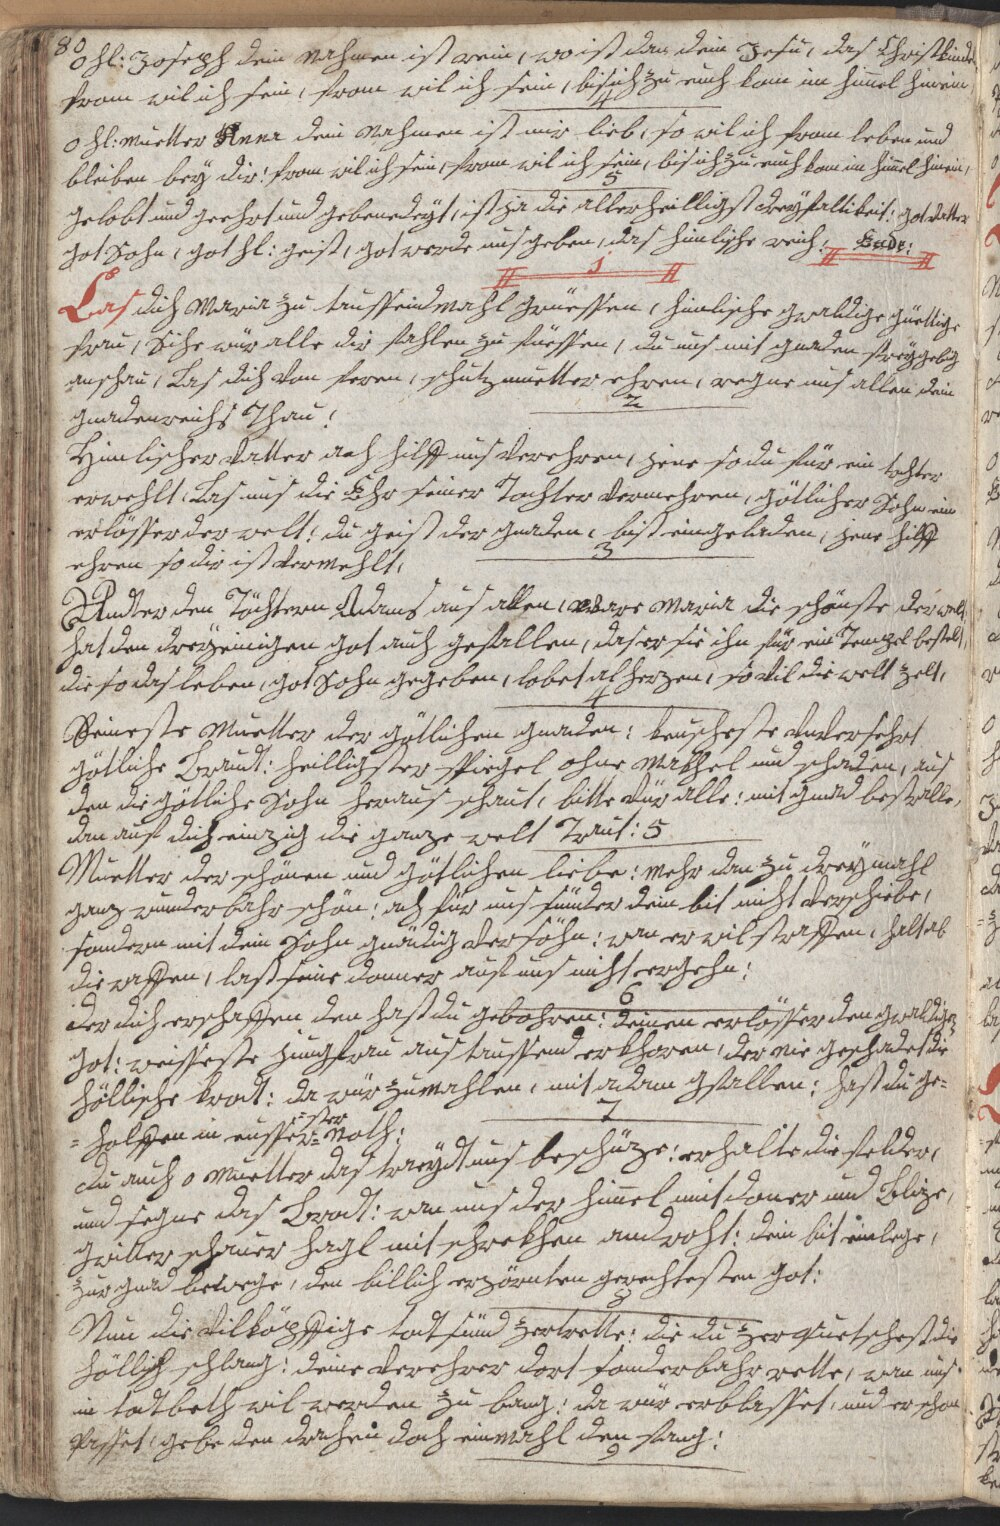 80
O hl: Joseph dein Nahmen ist rein, wo ist dan dein Jesu, das Christkindl
from wil ich sein, from wil ich sein, bis ich zu euch kom im himel hinein,
4
O hl: Muetter Anna dein Nahmen ist mir lieb, so wil ich from leben und
bleiben bey dir: from wil ich sein, from wil ich sein, bis ich zu euch kom im himel hinein,
5
gelobt und geehrt und gebenedeyt, ist ja die allerheilligst dreyfaltikeit: got Vatter
got Sohn, got hl: geist, got werde uns geben, das himlische reich: Ende:
1
Las dich Maria zu taussendmahl grüessen, himlische gwaldige güettige
frau, Sihe wür alle dir fahlen zu füessen, du uns mit gnaden freygebig
anschau, Las dich von feren, schutzmuetter ehren, regne uns allen dein
gnadenreichs Thau:
2
Himlischer Vatter ach hilff uns verehren, jene so du für ein tochter
erwehlt, Las uns die Ehr seiner Tochter vermehren, götlicher Sohn ein
erlösser der welt: du geist der gnaden, bist eingeladen, jene hilff
ehren so dir ist vermehlt,
3
Undter den Töchtern Adams aus allen, ware Maria die schönste der welt,
hat den dreyeinigen got auch gefallen, das er sie ihn für ein Tempel bestelt,
die so das leben, got Sohn gegeben, lobet al herzen, so vil die welt zelt,
4
Reineste Muetter der götlichen gnaden: keuscheste unversehrt
götliche Braudt: heilligster spiegel ohne Makhel und schaden, aus
den die götliche Sohn heraus schaut, bitte vür alle: mit gnad bestralle,
dan auf dich einzig die ganze welt Traut: 5
Muetter der schönen und götlichen liebe: mehr dan zu dreymahl
ganz wunderbahr schön: ach für uns sünder dein bit nicht verschiebe,
sondern mit dein Sohn gnädig versöhn: wan er wil straffen, halt ab
die waffen, last seine donner auf uns nicht ergehn:
6
der dich erschaffen den hast du gebohren: deinen erlösser den gwaldigen
got: weisseste jungfrau aus taussend erkhoren, der nie geschadet die
höllische krodt: da wür zumahlen, mit adam gfallen: hast du ge=
=holffen in eusser=ster Noth:
7
du auch o Muetter das traydt uns beschüze: erhalte die felder,
und segne das Brodt: wan uns der himel mit doner und Blize,
gwitter schauer hagl mit schrekhen androht: dein bit einlege,
zur gnad bewege, den billich erzörnten gerechtesten got:
8
Nun die vilköpffige todtsünd zertrette: die du zerquetschest die
höllisch schlang: deine verehrer dort sonderbahr rette, wan uns
in todtbeth wil werden zu bang: da wür erblasset, und er schon
passet, gebe den drachen doch einmahl den fang:
9